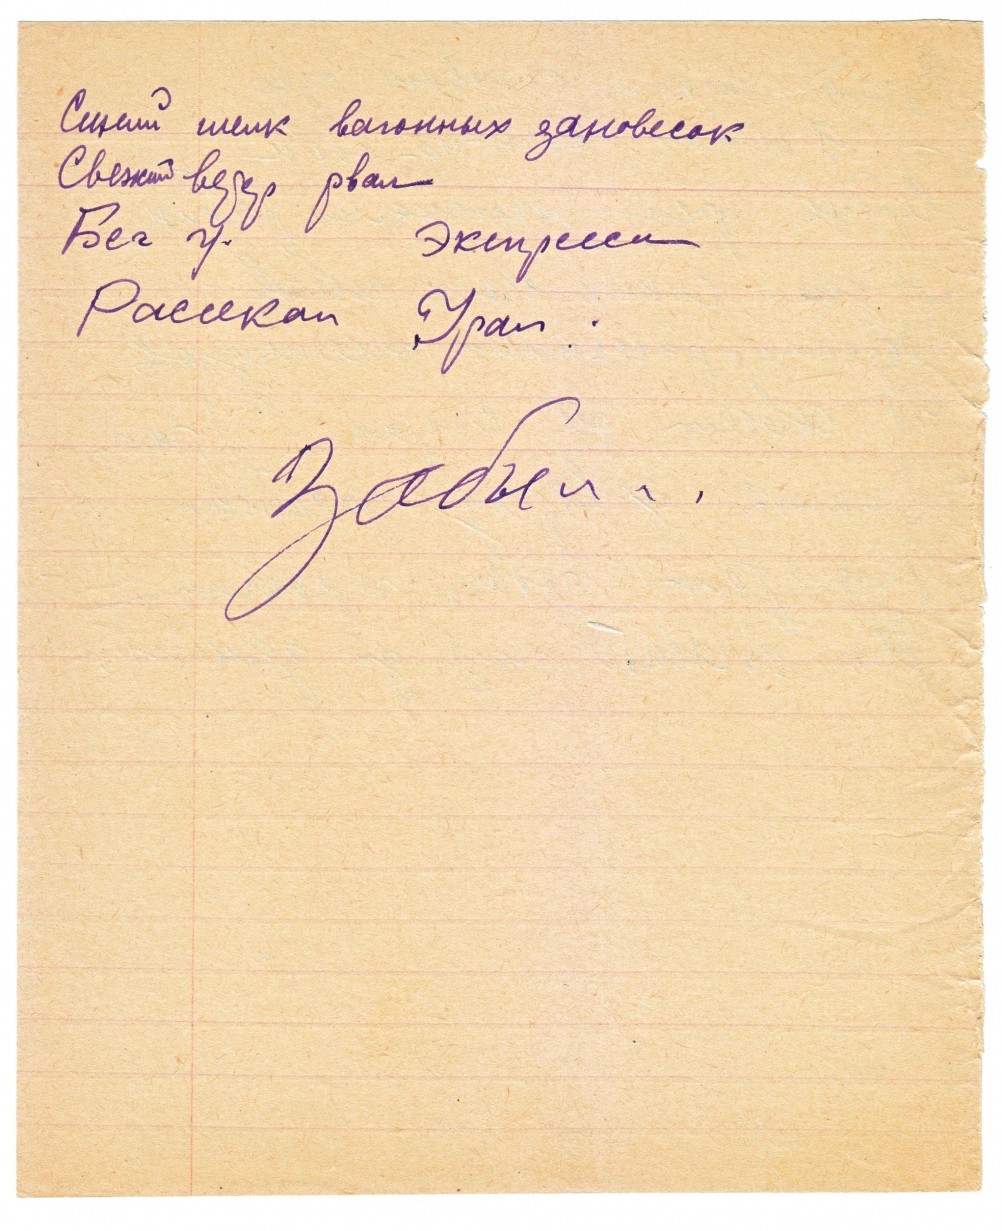 Синий шелк вагонных зановесок
Свежий ветер рвал
Бег у. Экспресса
Рассекал Урал.
Забыл...